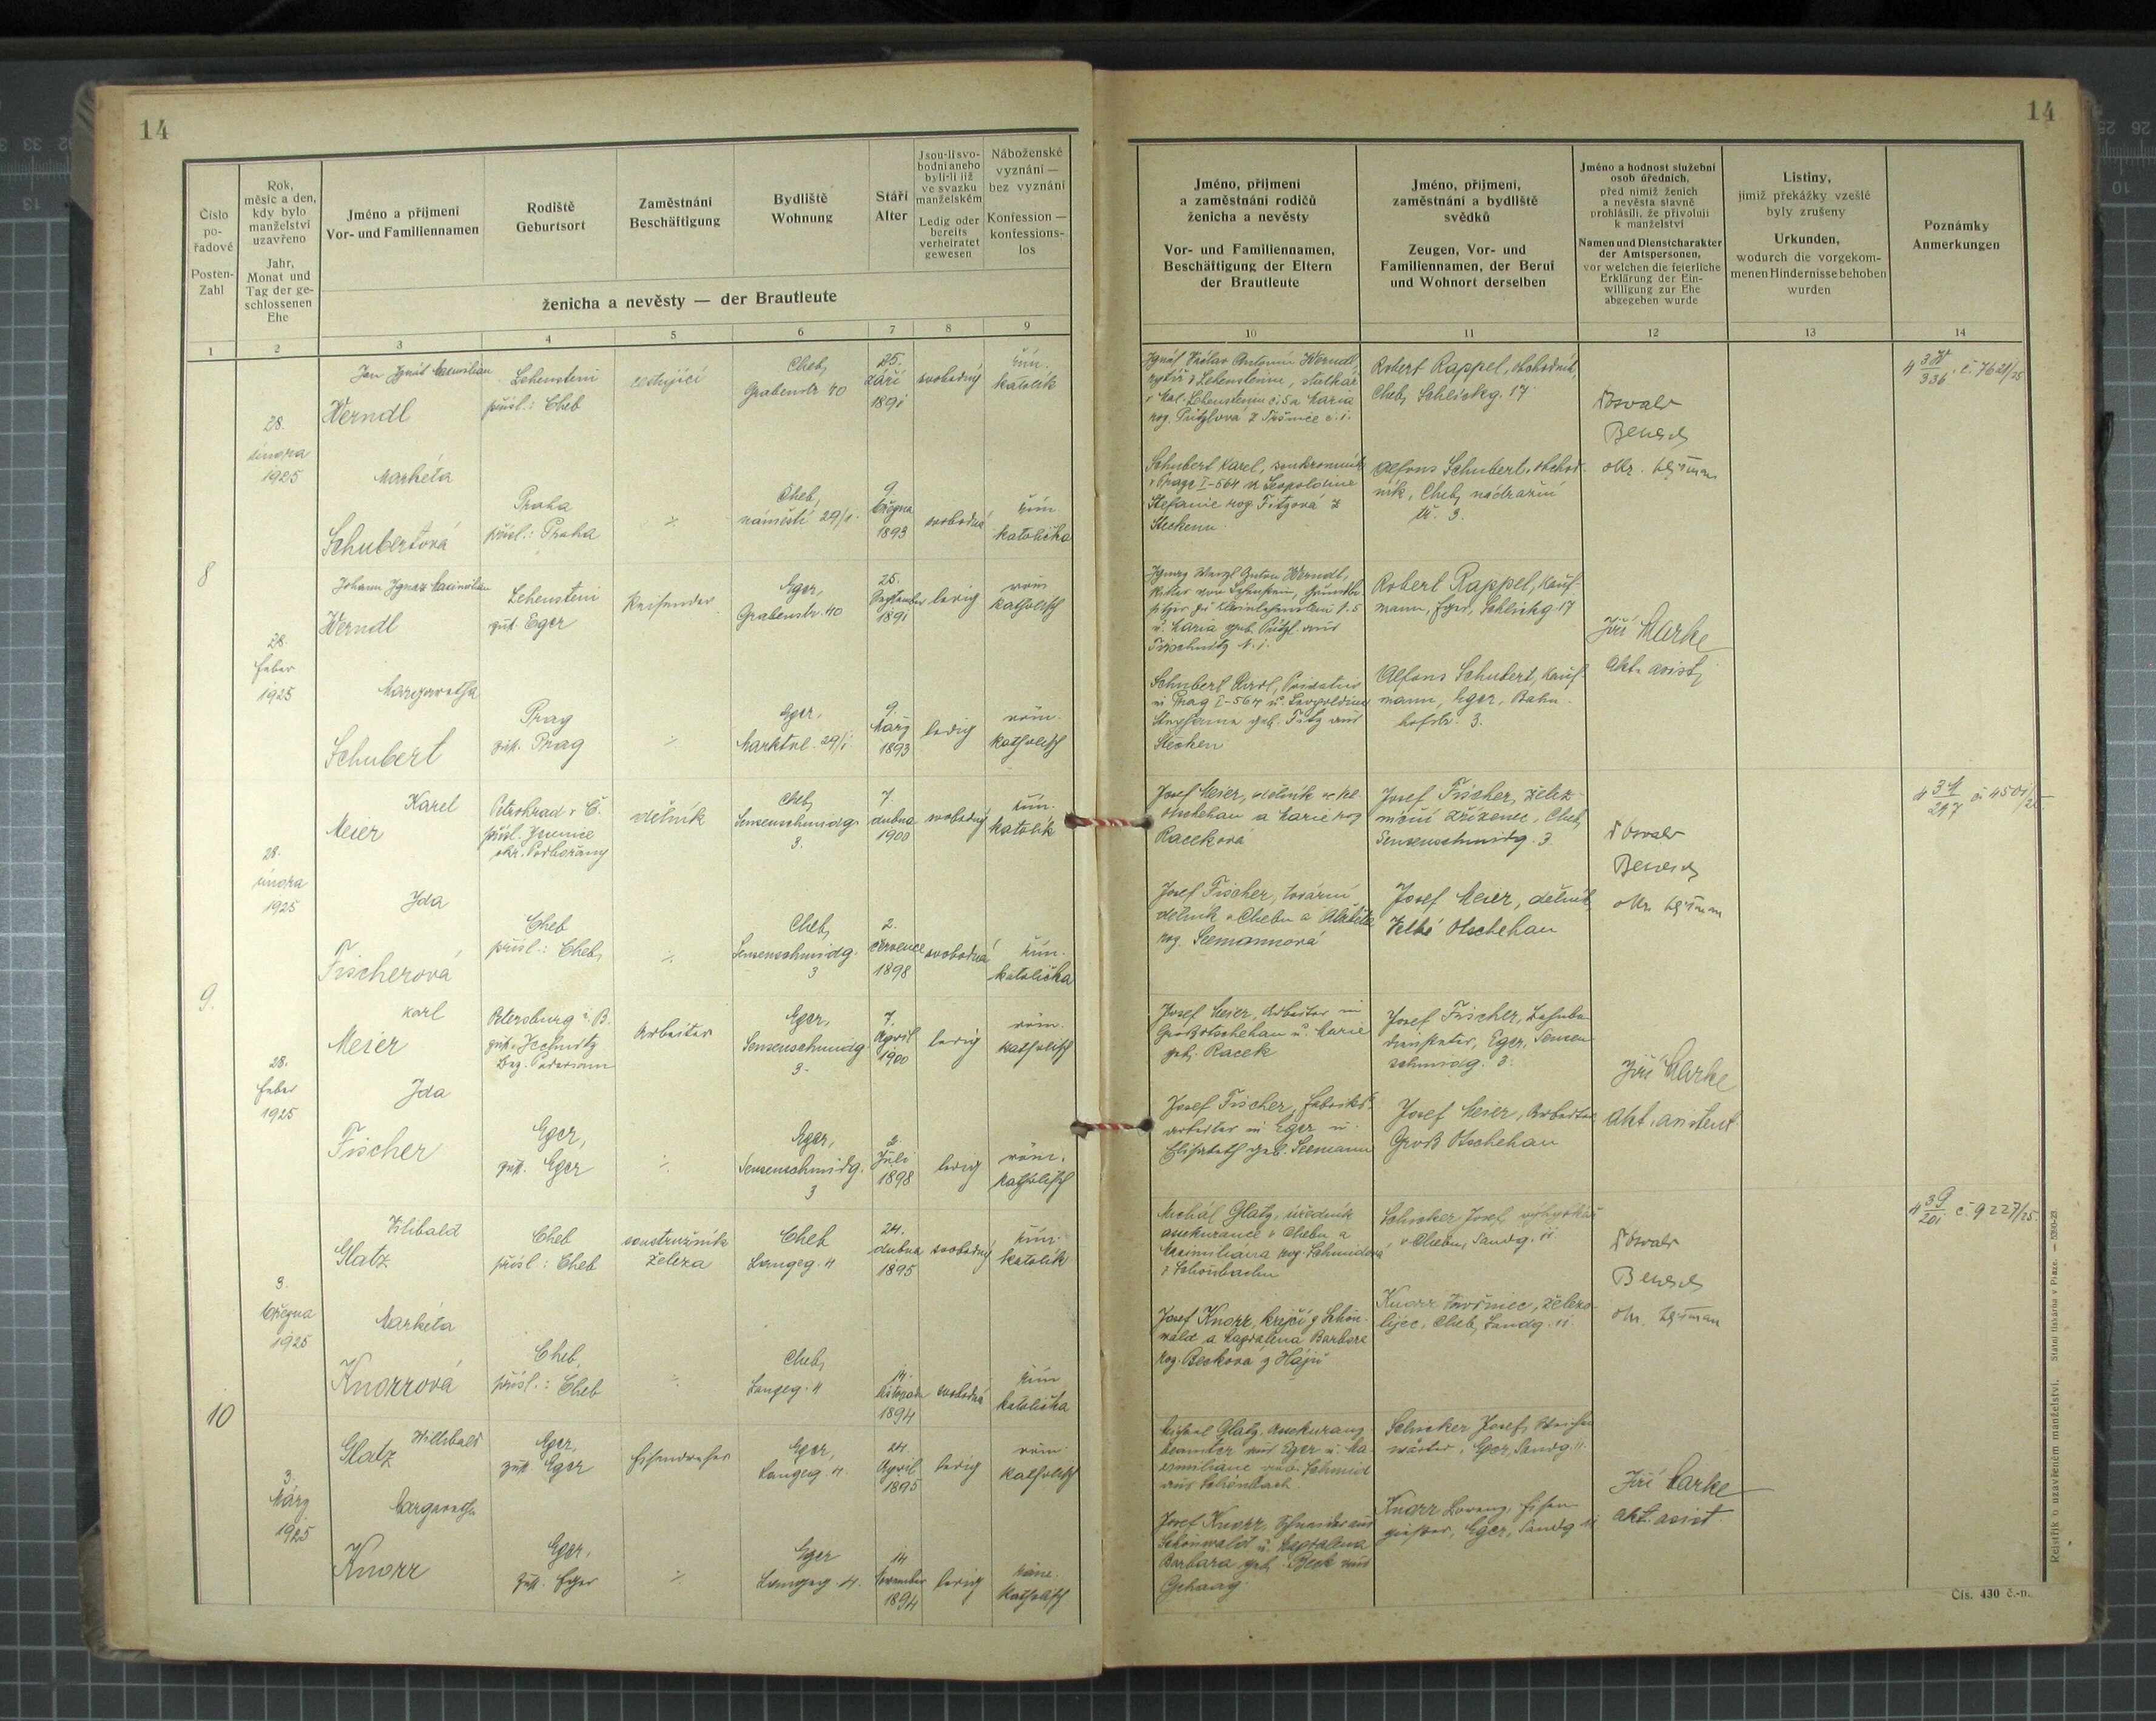 14
14
Číslo
po-
řadové
Posten-
Zahl
Rok,
měsíc a den,
kdy bylo
manželství
uzavřeno
Jahr,
Monat und
Tag der ge-
schlossenen
Ehe
Jméno a přijmeni
Vor- und Familiennamen
Rodiště
Geburtsort
Zaměstnáni
Beschäftigung
Bydliště
Wohnung
Stáří
Alter
Jsou-li svo-
bodni anebo
byli-li již
ve svazku
manželském
Ledig oder
bereits
verheiratet
gewesen
Náboženské
vyznání —
bez vyznání
Konfession —
konfessions-
los
ženicha a nevěsty — der Brautleute
1 2 3 4 5 6 7 8 9
28.
února
1925
Jan Ignát Maxmilian
Werndl
Lehenstein
přísl.: Cheb
cestující
Cheb,
Grabenstr 40
25.
září
1891
svobodný
řím.
katolík
Markéta
Schubertová
Praha
přísl.: Praha
Cheb,
náměstí 29/I.
9.
března
1893
svobodná
řím.
katolička
8
28.
Feber
1925
Johann Ignaz Maximilian
Werndl
Lehenstein
zust. Eger
Reisender
Eger,
Grabenstr. 40
25.
September
1891
ledig
röm.
katholisch
Margaretha
Schubert
Prag
zust. Prag
Eger,
Marktpl. 29/I
9.
März
1893
ledig
röm.
katholisch
28.
února
1925
Karel
Meier
Petrohrad v Č.
přísl. Jesenice
okr. Podbořany
dělník
Cheb,
Sensenschmidg.
3.
7.
dubna
1900
svobodný
řím.
katolík
Ida
Fischerová
Cheb
přísl.: Cheb,
Cheb,
Sensenschmidg.
3
2.
července
1898
svobodná
řím.
katolička
9.
28.
Feber
1925
Karl
Meier
Petersburg i. B.
zust. Jechnitz
Bez. Podersam
Arbeiter
Eger,
Sensenschmidg.
3.
7.
April
1900
ledig
röm.
katholisch
Ida
Fischer
Eger,
zust. Eger
Eger,
Sensenschmidg.
3
2.
Juli
1898
ledig
röm.
katholisch
3.
března
1925
Vilibald
Glatz
Cheb
přísl.: Cheb
soustružník
železa
Cheb
Langeg. 11
24.
dubna
1895
svobodný
řím.
katolík
Markéta
Knorrová
Cheb,
přísl.: Cheb
Cheb,
Langeg. 11
14.
listopadu
1894
svobodná
řím.
katolička
10
3.
März
1925
Willibald
Glatz
Eger,
zust. Eger
Eisendreher
Eger,
Langeg. 11.
24.
April
1895
ledig
röm.
katholisch
Margaretha
Knorr
Eger,
zust. Eger
Eger
Langeg. 11.
14
November
1894
ledig
röm.
katholisch
Jméno, přijmeni
a zaměstnání rodičů
ženicha a nevěsty
Vor- und Familiennamen,
Beschäftigung der Eltern
der Brautleute
Jméno, přijmeni,
zaměstnání a bydliště
svědků
Zeugen, Vor- und
Familiennamen, der Beruf
und Wohnort derselben
Jméno a hodnost služební
osob úředních,
před nimiž ženich
a nevěsta slavně
prohlásili, že přivolují
k manželství
Namen und Dienstcharakter
der Amtspersonen,
vor welchen die feierliche
Erklärung der Ein-
willigung zur Ehe
abgegeben wurde
Listiny,
jimiž překážky vzešlé
byly zrušeny
Urkunden,
wodurch die vorgekom-
menen Hindernisse behoben
wurden
Poznámky
Anmerkungen
10 11 12 13 14
Ignát Václav Antonín Werndl
rytíř z Lehensteinu, statkář
v Mal. Lehensteinu č. 5 a Maria
roz. Pützlová z Tršnice č. 1.
Robert Rappel, obchodník,
Cheb, Schlickg. 17
Oswald
Benesch
okr. hejtman
Schubert Karel, soukromník
v Praze I-564 a Leopoldine
Stefanie roz. Fitzová z
Steckenu
Alfons Schubert, obchod-
ník, Cheb, nádražní
tř. 3.
Ignaz Wenzl Anton Werndl,
Ritter von Lehenstein, Grundbe-
sitzer in Kleinlehenstein N. 5
u. Maria geb. Pützl aus
Tirschnitz N. 1.
Robert Rappel, Kauf-
mann, Eger, Schlickg. 17
Jiří Marke
akt. asist.
Schubert Karl, Privatier
in Prag I-564 u. Leopoldine
Stephanie geb. Fitz aus
Stecken
Alfons Schubert, Kauf-
mann, Eger, Bahn-
hofstr. 3.
Josef Meier, dělník ve Vel.
Otschehau a Marie roz
Raceková
Josef Fischer, želez-
niční zřízenec, Cheb,
Sensenschmidg. 3
Oswald
Benesch
okr. hejtman
Josef Fischer, tovární
dělník v Chebu a Alžběta
roz. Seemannová
Josef Meier, dělník,
Velké Otschehau
Josef Meier, Arbeiter in
Grossotschehau u. Marie
geb. Racek
Josef Fischer, Bahnbe-
diensteter, Eger, Sensen-
schmidg. 3.
Jiří Marke
akt. asistent
Josef Fischer, Fabriks-
arbeiter in Eger u.
Elisabeth geb. Seemann
Josef Meier, Arbeiter
Groß Otschehau
Michál Glatz, úředník
assekurance v Chebu a
Maximiliana roz. Schmidová
z Schönbachu
Schicker Josef výhybkář
v Chebu, Sandg. 11
Oswald
Benesch
okr. hejtman
Josef Knorr, krejčí z Schön-
wald a Magdalena Barbara
roz. Becková z Hájů
Knorr Vavřinec, železo-
lijec, Cheb, Sandg. 11
Michael Glatz, Assekuranz-
beamter aus Eger u. Ma-
ximiliane geb. Schmid
aus Schönbach.
Schicker Josef, Weichen-
wärter, Eger, Sandg. 11.
Jiří Marke
akt. asist
Josef Knorr, Schneider aus
Schönwald u. Magdalena
Barbara geb. Beck aus
Gehaag.
Knorr Lorenz, Eisen-
giesser, Eger, Sandg 11
Rejstřík o uzavřeném manželství. Státní tiskárna v Praze. —
Čís. 430 č.-n.